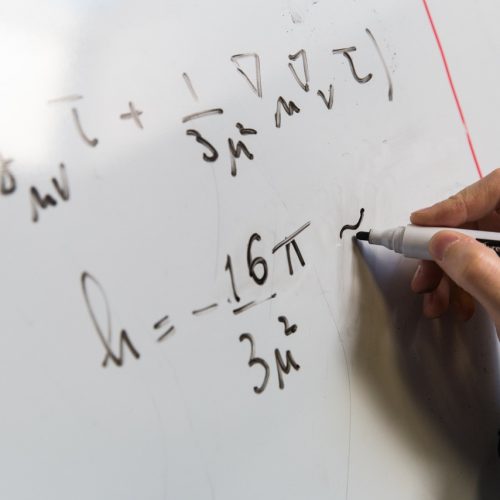 μν τ + 1/3μ² ∇μ ∇ν τ)
h = - 16π/3μ² ~